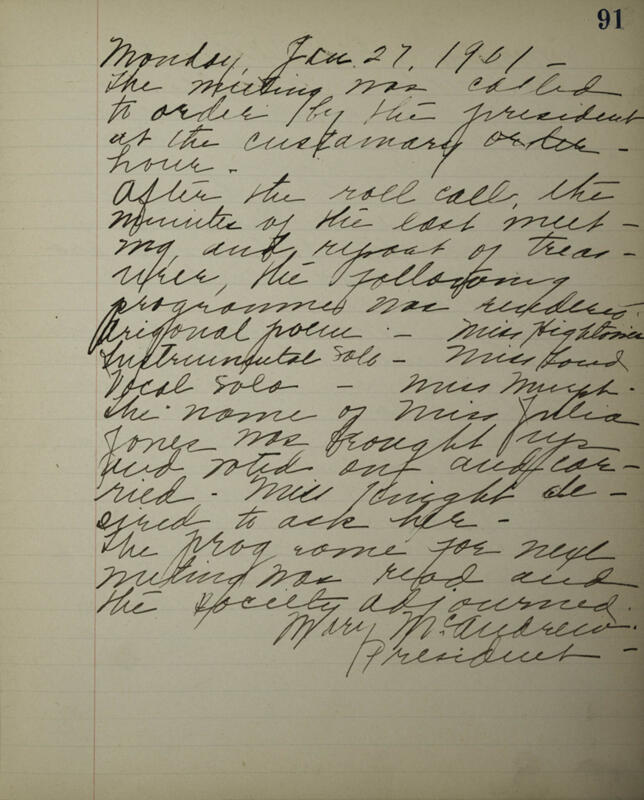 91
Monday, Jan. 27, 1901 -
The meeting was called
to order by the president
at the customary order -
hour -
After the roll call, the
minutes of the last meet -
ing, and report of treas -
urer, the following
programme was rendered.
Origonal poem - Miss Hightower
Instrumental Solo - Miss
Vocal Solo - Miss Murph.
The name of Miss Julia
Jones was brought up
and voted on and car -
ried - Miss Knight de -
sired to ask her -
The programe for next
meeting was read and
the society adjourned.
Mary McAndrew.
President -